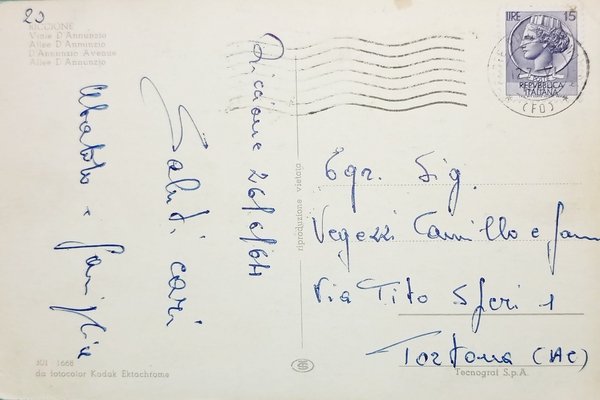 23
RICCIONE
Viale D'Annunzio
Allee D'Annunzio
D'Annunzio Avenue
Allee D'Annunzio
Riccione 26/6/64
Saluti cari
e famiglia
JOI 1668
da fotocolor Kodak Ektachrome
riproduzione vietata
LIRE 15
POSTE
REPVBBLICA
ITALIANA
(FO)
Egr. Sig.
Vegezzi Camillo e fam
Via Tito Speri 1
Tortona (AL)
Tecnograf S.p.A.